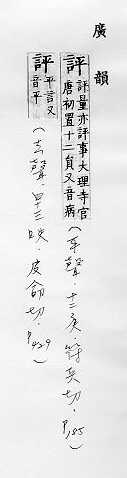 廣韻
評 評量亦評事大理寺官
唐初置十二員又音病
(平聲·十二庚·符兵切·P.185)
評 平言又
音平
(去聲·四十三映·皮命切·P.429)